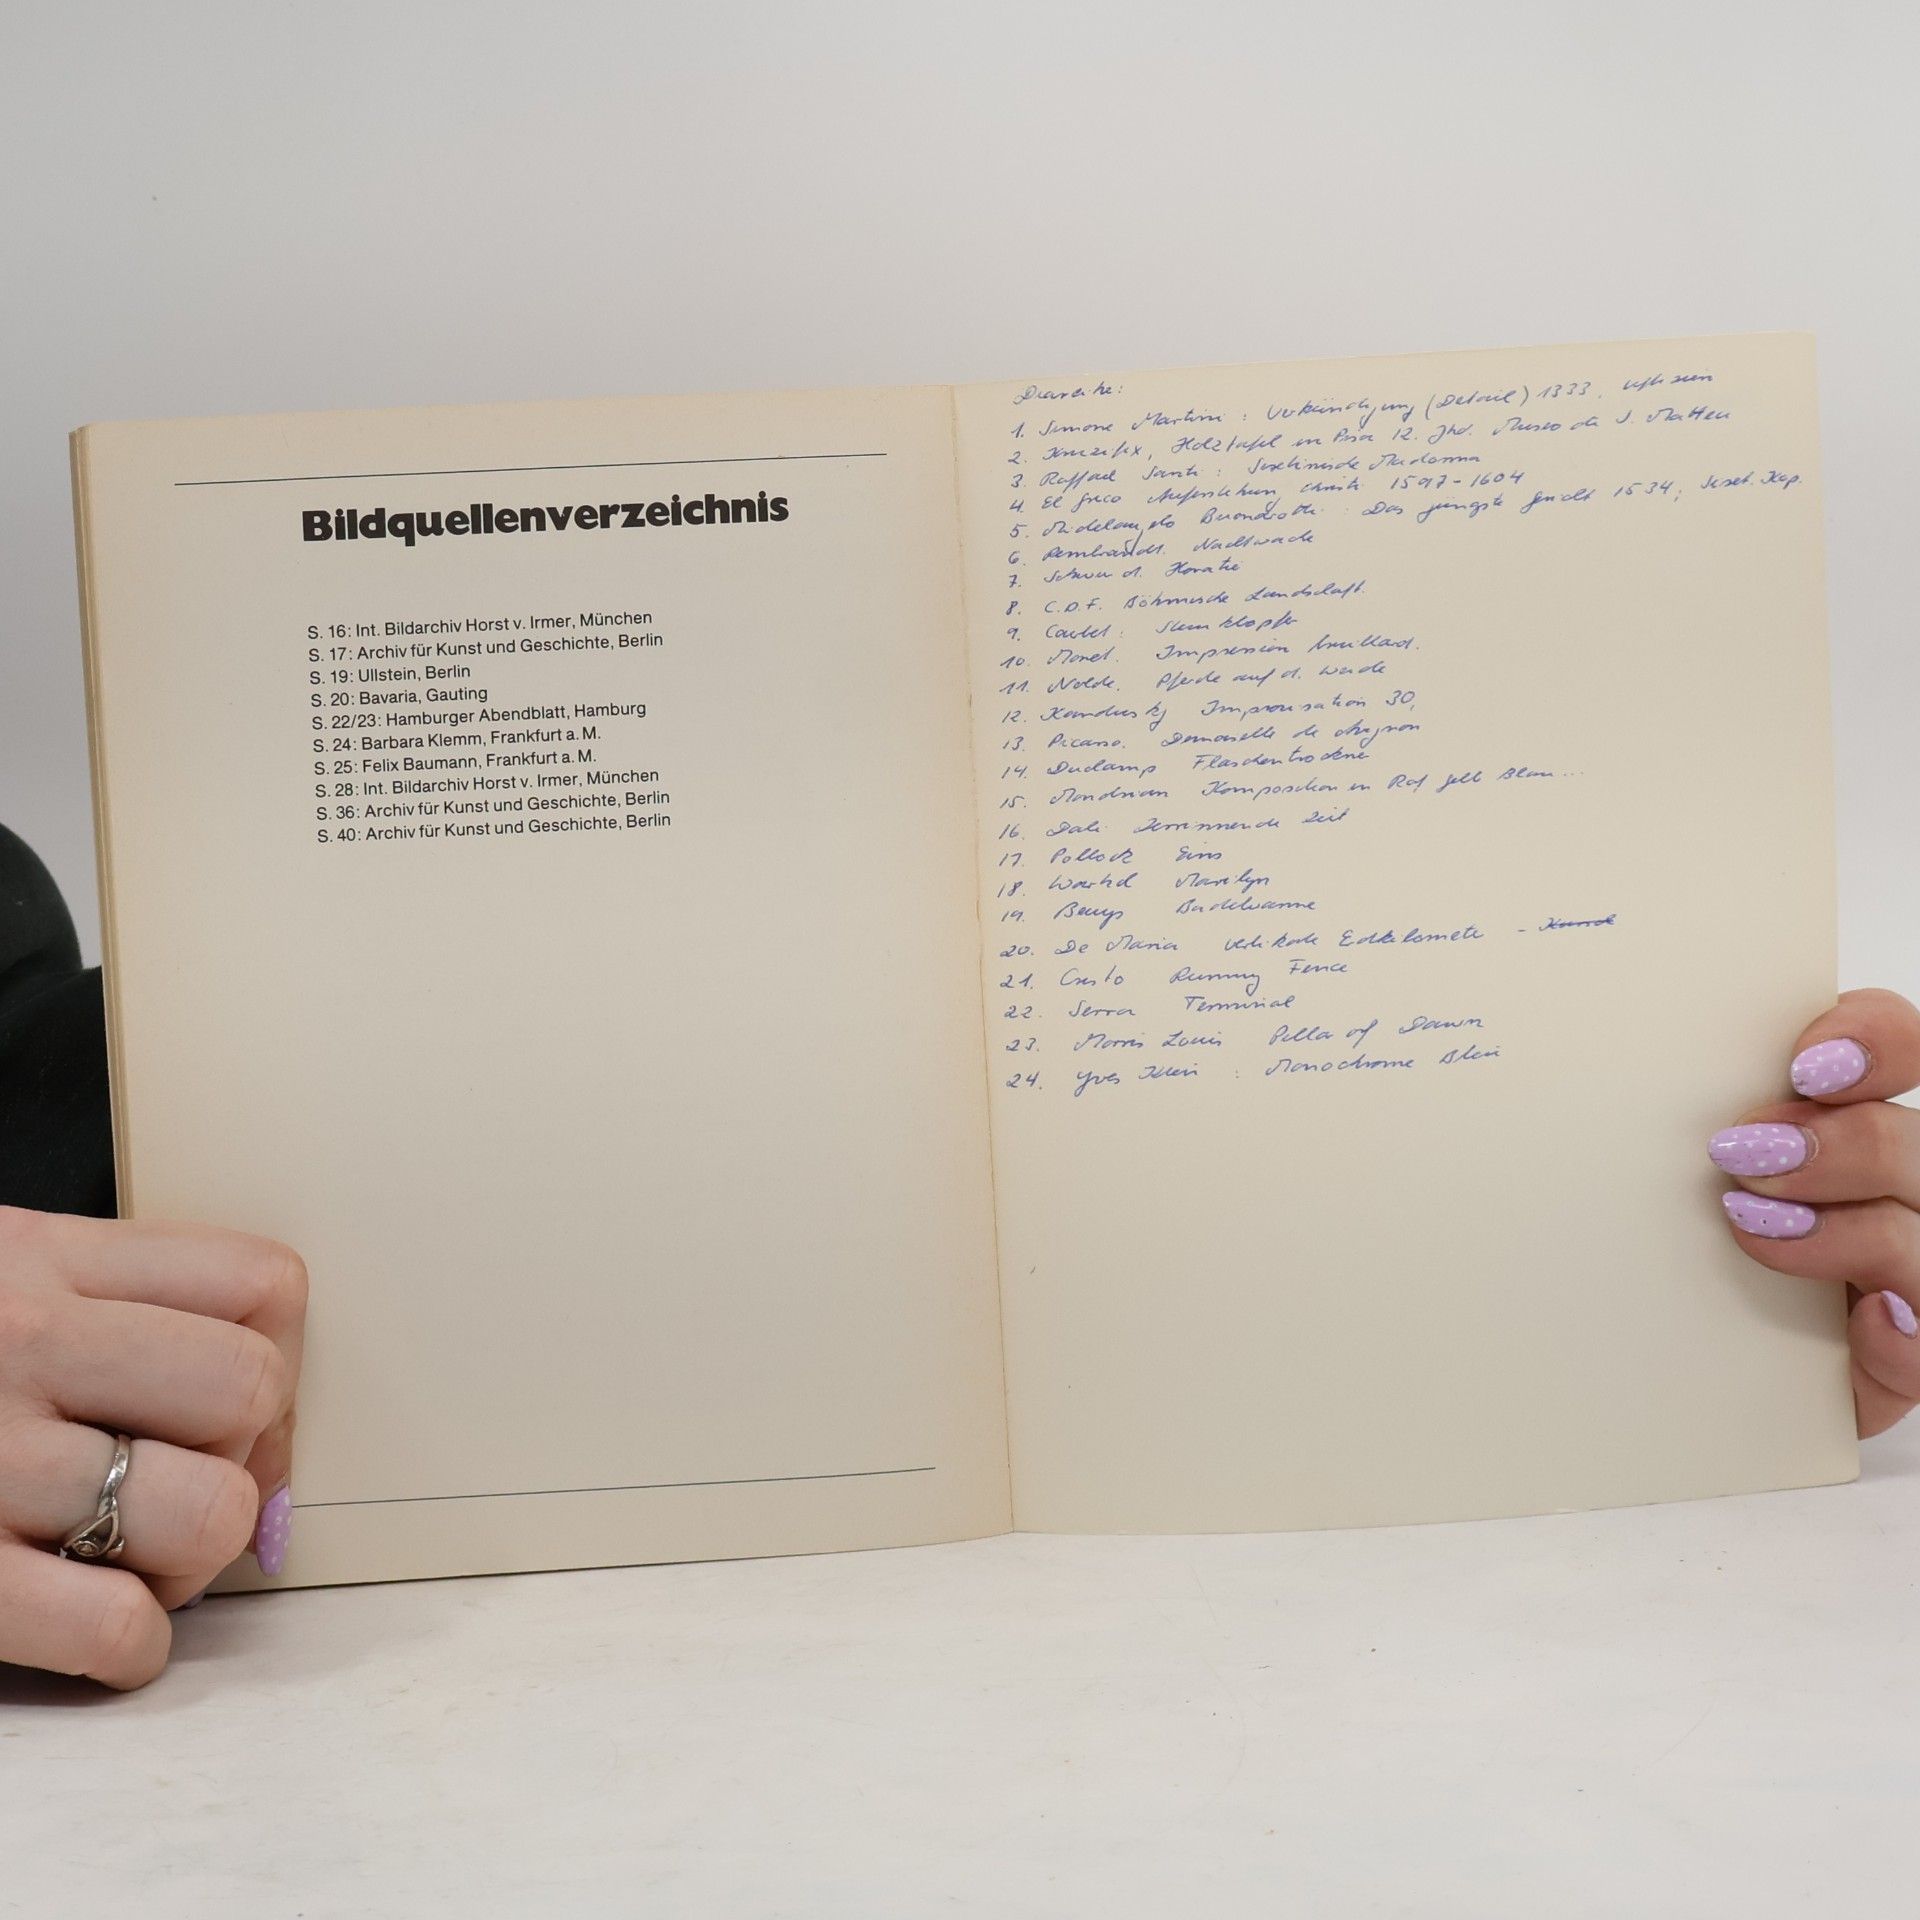 Bildquellenverzeichnis
S. 16: Int. Bildarchiv Horst v. Irmer, München
S. 17: Archiv für Kunst und Geschichte, Berlin
S. 19: Ullstein, Berlin
S. 20: Bavaria, Gauting
S. 22/23: Hamburger Abendblatt, Hamburg
S. 24: Barbara Klemm, Frankfurt a. M.
S. 25: Felix Baumann, Frankfurt a. M.
S. 28: Int. Bildarchiv Horst v. Irmer, München
S. 36: Archiv für Kunst und Geschichte, Berlin
S. 40: Archiv für Kunst und Geschichte, Berlin
Diareihe:
1. Simone Martini: Verkündigung (Detail) 1333, Uffizien
2. Kruzifix, Holztafel in Pisa 12. Jhd. Museo di S. Matteo
3. Raffael Santi: Sixtinische Madonna
4. El Greco Auferstehung Christi 1597-1604
5. Michelangelo Buonarotti: Das jüngste Gericht 1534; Sixt. Kap.
6. Rembrandt. Nachtwache
7. Schwur d. Horatie
8. C.D.F. Böhmische Landschaft.
9. Courbet: Steinklopfer
10. Monet. Impression brouillard.
11. Nolde. Pferde auf d. Weide
12. Kandinsky Improvisation 30,
13. Picasso. Demoiselle de Avignon
14. Duchamp Flaschentrockner
15. Mondrian Komposition in Rot gelb Blau...
16. Dali Zerrinnende Zeit
17. Pollock Eins
18. Warhol Marilyn
19. Beuys Badewanne
20. De Maria vertikale Erdkilometer -
21. Cristo Running Fence
22. Serra Terminal
23. Morris Louis Pillar of Dawn
24. Yves Klein: Monochrome Bleu